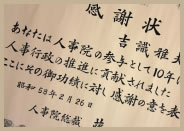 感謝状
吉識雅夫
あなたは人事院の参与として10年
人事行政の推進に貢献されました
ここにその御功績に対し感謝の意を表
昭和58年2月26日
人事院総裁